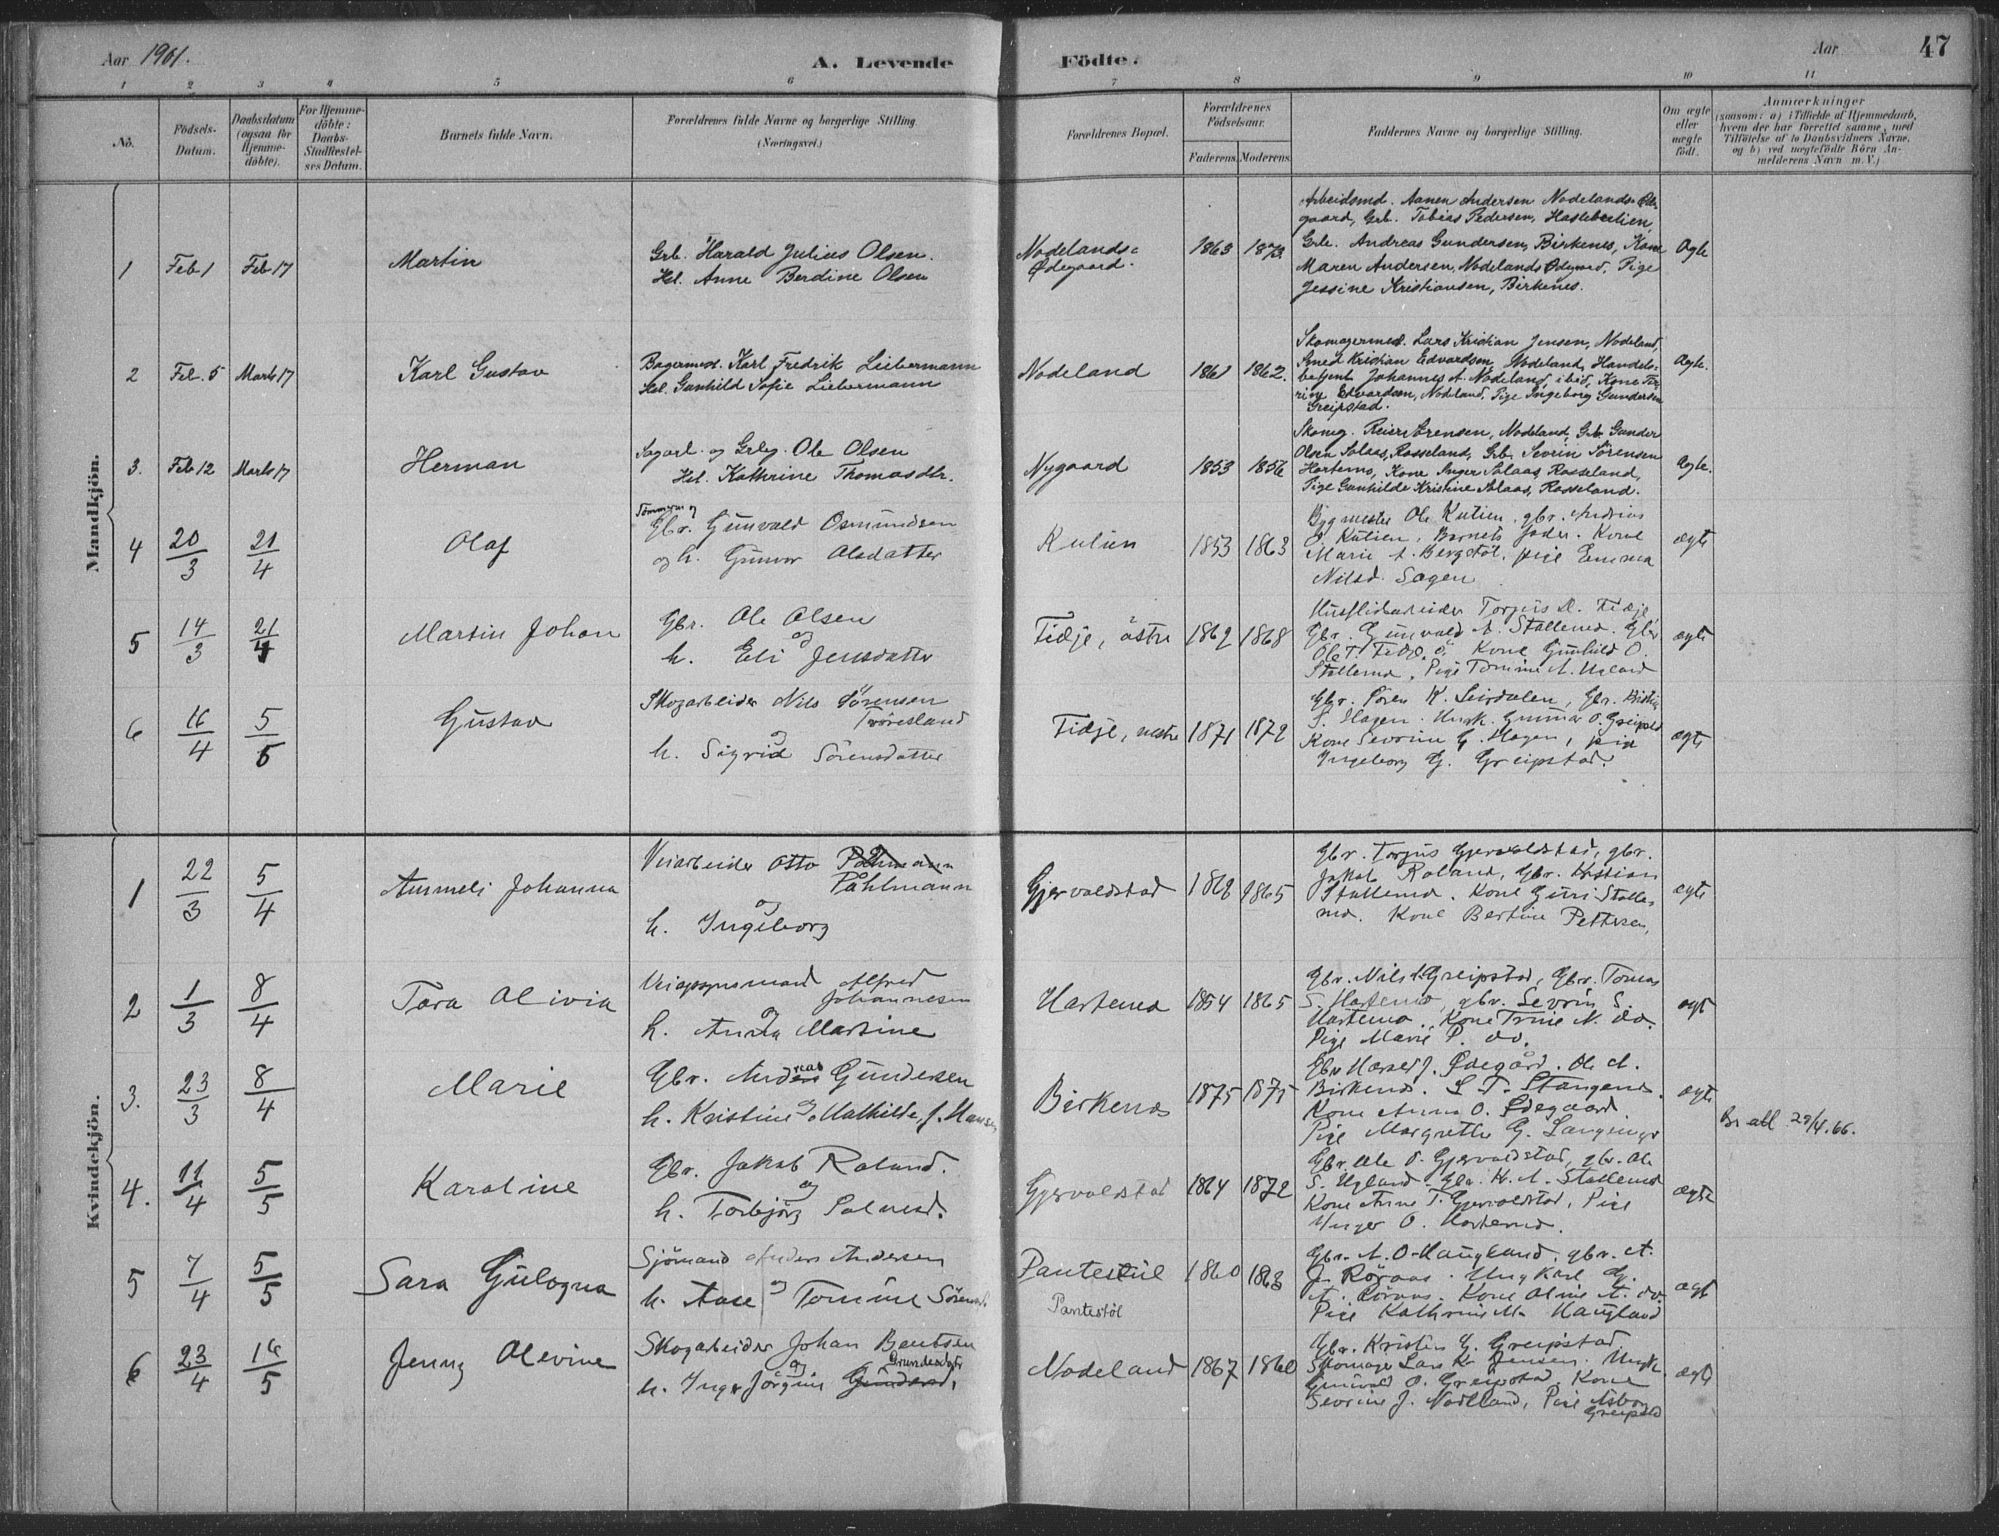 Aar 1901.
A. Levende Födte.
Aar
47
1 2 3 4 5 6 7 8 9 10 11
No.
Födsels-Datum.
Daabsdatum (ogsaa for Hjemme-döbte).
For Hjemme-döbte: Daabs-Stadfæstelses Datum.
Barnets fulde Navn.
Forældrenes fulde Navne og borgerlige Stilling.
(Næringsvei.)
Forældrenes Bopæl.
Forældrenes Födselsaar.
Faderens. Moderens.
Faddernes Navne og borgerlige Stilling.
Om ægte eller uægte födt.
Anmærkninger
(saasom: a) i Tilfælde af Hjemmedaab,
hvem der har forrettet samme, med
Tilföielse af to Daabsvidners Navne,
og b) ved uægtefödte Börn An-
melderens Navn m. V.)
Mandkjön.
1 Feb 1 Feb 17 Martin
Grb. Harald Julius Olsen.
Hst. Anne Berdine Olsen
Nodelands-
Ødegaard.
1863 1873
Arbeidsmd. Aanen Andersen Nodelands Øde-
gaard, Grb. Tobias Pedersen, Hastebetien,
Grb. Andreas Gundersen, Birkenes, Kone
Maren Andersen, Nodelands Ødegaard, Pige
Jessine Kristiansen, Birkenes.
Ægte
2 Feb. 5 Marts 17 Karl Gustav
Bagermest. Karl Fredrik Liebermann
Hst. Gunhild Sofie Liebermann
Nodeland
1861 1862.
Skomagermest. Lars Kristian Jensen, Nodeland,
Smed Kristian Edvardsen, Nodeland, Handels-
betjent Johannes A. Nodeland, ibid, Kone To-
rine Edvardsen, Nodeland, Pige Ingeborg Gundersen
Greipstad.
Ægte.
3. Feb 12 Marts 17 Herman
Sagarb. og Grbg. Ole Olsen
Hst. Kathrine Thomasdtr.
Nygaard
1853 1856
Skomg. Reier Sörensen, Nodeland, Grb Gunder
Olsen Solaas, Rosseland, Grb. Severin Sörensen
Hortemo, Kone Inger Solaas, Rosseland,
Pige Gunhilde Kristine Solaas, Rosseland.
Ægte.
4 20/3 21/4 Olaf
Tömmerm og
Gbr. Gunvald Osmundsen
og h. Gunvor Olsdatter
Kulien
1853 1863
Bygmester Ole Kulien, gbr. Andreas
O. Kulien, Barnets fader. Kone
Marie A. Bergstöl, pige Emma
Nilsd. Sagen
ægte
5 14/3 21/4 Martin Johan
Gbr. Ole Olsen
og
h. Eli Jensdatter
Fidje, östre
1862 1868
Husflidsarbeider Torjus O. Fidje
Gbr. Gunvald A. Stallemo. Gbr
Ole T. Fidje ö. Kone Gunhild O.
Stallemo, Pige Tomine A. Ugland
ægte
6 16/4 5/5 Gustav
Skogarbeider Nils Sörensen
Tvöresland
og
h. Sigrid Sörensdatter
Fidje, vestre
1871 1872
Gbr. Sören K. Leirdalen, Gbr. Kristen
S. Hagen. Ungk. Gunnar O. Greipstad
Kone Severine G. Hagen, pige
Ingeborg G. Greipstad.
ægte
Kvindekjön.
1 22/3 5/4 Ammeli Johanna
Veiarbeider Otto
Påhlmann
og
h. Ingeborg
Gjervoldstad
1868 1865
Gbr. Torjus Gjervoldstad, gbr.
Jakob Roland, Gbr. Kristian
Stallemo. Kone Guri Stalle-
mo. Kone Bertine Pettersen,
ægte
2 1/3 8/4 Tora Olivia
Veiopsynsmand Alfred
Johannesen
og
h. Anna Martine
Hortemo
1854 1865
Gbr. Nils A. Greipstad, Gbr. Tomas
S. Hortemo, gbr. Severin S.
Hortemo. Kone Trine N. do.
Pige Marie P. do.
ægte
3. 23/3 8/4 Marie
Gbr. Andreas Gundersen
h. Kristine og Mathilde, f. Hansen
Birkenes
1875 1875
Gbr Harald J. Ødegård. Ole A.
Birkenes. L T. Stangenes.
Kone Anna O. Ødegaard.
Pige Margrethe G. Langenes
ægte
Br. att. 29/4. 66.
4. 11/4 5/5 Karoline
Gbr. Jakob Roland.
og
h. Torbjörg Salvesd.
Gjervoldstad
1864 1872
Gbr. Ole O. Gjervoldstad, gbr. Ole
S. Ugland. Gbr. K. A. Stallemo
Kone Anne T. Gjervoldstad, Pige
Unger O. Hortemo.
ægte
5 7/4 5/5 Sara Gulogna
Sjömand Anders Andersen
og
h. Aase Tomine Sörensd.
Pantestül
Pantestöl
1860 1863
Gbr. A. O. Haugland. gbr. A.
J. Röraas. Ungkarl G.
A. Röraas. Kone Oline A. do.
Pige Kathrine M. Haugland
ægte
6 23/4 16/5 Jenny Olevine
Skogarbeider Johan Bentsen
og Grundesdatr
h. Inger Jörgine Gundersd.
Nodeland
1867 1860
Gbr. Kristen G. Greipstad
Skomager Lars Kr. Jensen. Ungk.
Gunvald O. Greipstad. Kone
Severine J. Nodeland, Pige Asborg
Greipstad
ægte